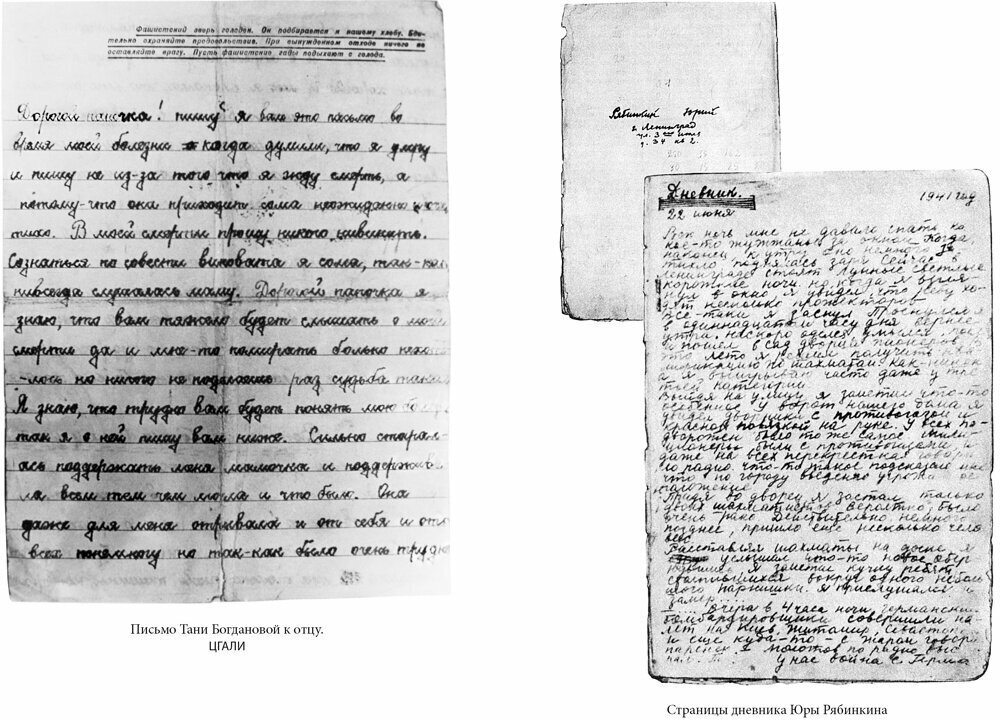 Фашистский зверь голоден. Он подбирается к нашему хлебу. Бди-
тельно охраняйте продовольствие. При вынужденном отходе ничего не
оставляйте врагу. Пусть фашистские гады подыхают с голода.
Дорогой папочка! пишу я вам это письмо во
время моей болезни и когда думали, что я умру
и пишу не из-за того что я жду смерть, а
потому-что она приходит сама неожиданно и
тихо. В моей смерти прошу никого не
Сознаться по совести виновата я сама, так-как
слушалась маму. Дорогой папочка я
знаю, что вам тяжело будет слышать о моей
смерти да и мне-то помирать больно нехоте-
-лось но ничего не поделаешь раз судьба такая
Я знаю, что трудно вам будет понять мою
так я о ней пишу вам ниже. Сильно старал-
ась поддержать меня мамочка и поддержива
ла всем тем чем могла и что было. Она
даже для меня отрывала и от себя и от
всех понемногу но так-как было очень трудно
Письмо Тани Богдановой к отцу.
ЦГАЛИ
Рябинкин Юрий
г. Ленинград
ул. 3
д. 34 кв 2.
Дневник. 1941 год
22 июня
Всю ночь мне не давало спать ка
кое-то жужжанье за окном. Когда
наконец к утру оно немного
тихло поднялась заря. Сейчас в
Ленинграде стоят лунные светлые
короткие ночи. но когда я взгля-
нул в окно я увидел что небу хо-
дят несколько прожекторов
Все-таки я заснул. Проснулся я
в одиннадцатом часу дня вернее
утра. Наскоро оделся умылся
и пошел в сад дворца пионеров. В
это лето я решил получить
лификацию по шахматам. Как-никак
а я выигрываю часто даже у тре
тьей категории
Выйдя на улицу я заметил что-то
особенное. У ворот нашего дома я
увидел дворника с противогазом и
красной повязкой на руке. У всех по-
дворотен было то же самое.
были с противогазами и
даже на всех перекрестках говори
ло радио. Что-то такое подсказало мне
что по городу введено угрожа
положение.
Придя во дворец я застал только
двоих шахматистов. Вероятно было
очень рано. Действительно немного
позднее, пришло еще несколько чело
век.
Расставляя шахматы на доске я
услышал что-то новое обер
нувшись я заметил кучку ребят
столпившихся вокруг одного неболь
шого парнишки. Я прислушался и
замер...
... Вчера в 4 часа ночи германские
бомбардировщики совершили на
лет на Киев, Житомир, Севастопо
и еще куда-то - с жаром говорил
паренек. Молотов по радио выс
у нас война с Герма
Страницы дневника Юры Рябинкина